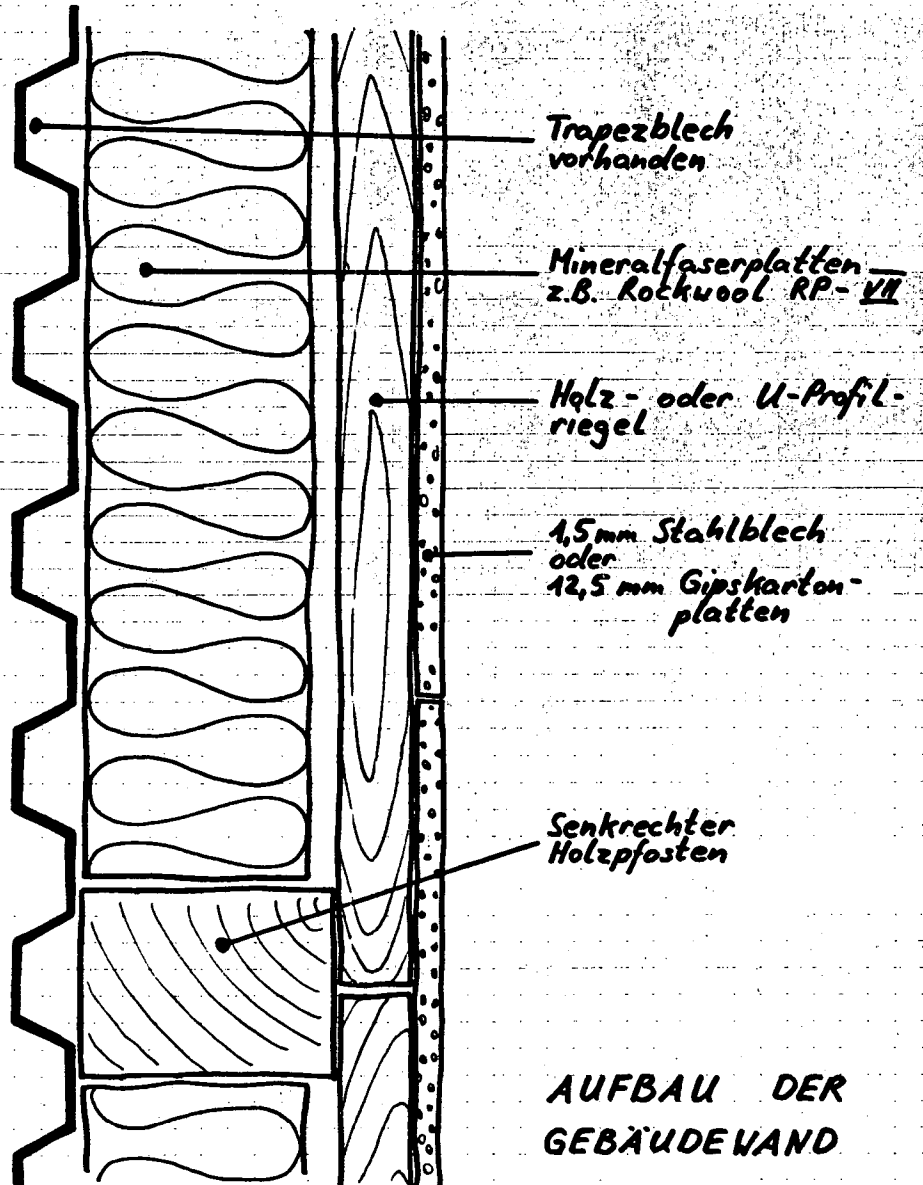 Trapezblech
vorhanden
Mineralfaserplatten
z.B. Rockwool RP-VII
Holz- oder U-Profil-
riegel
1,5 mm Stahlblech
oder
12,5 mm Gipskarton-
platten
Senkrechter
Holzpfosten
AUFBAU DER
GEBÄUDEWAND